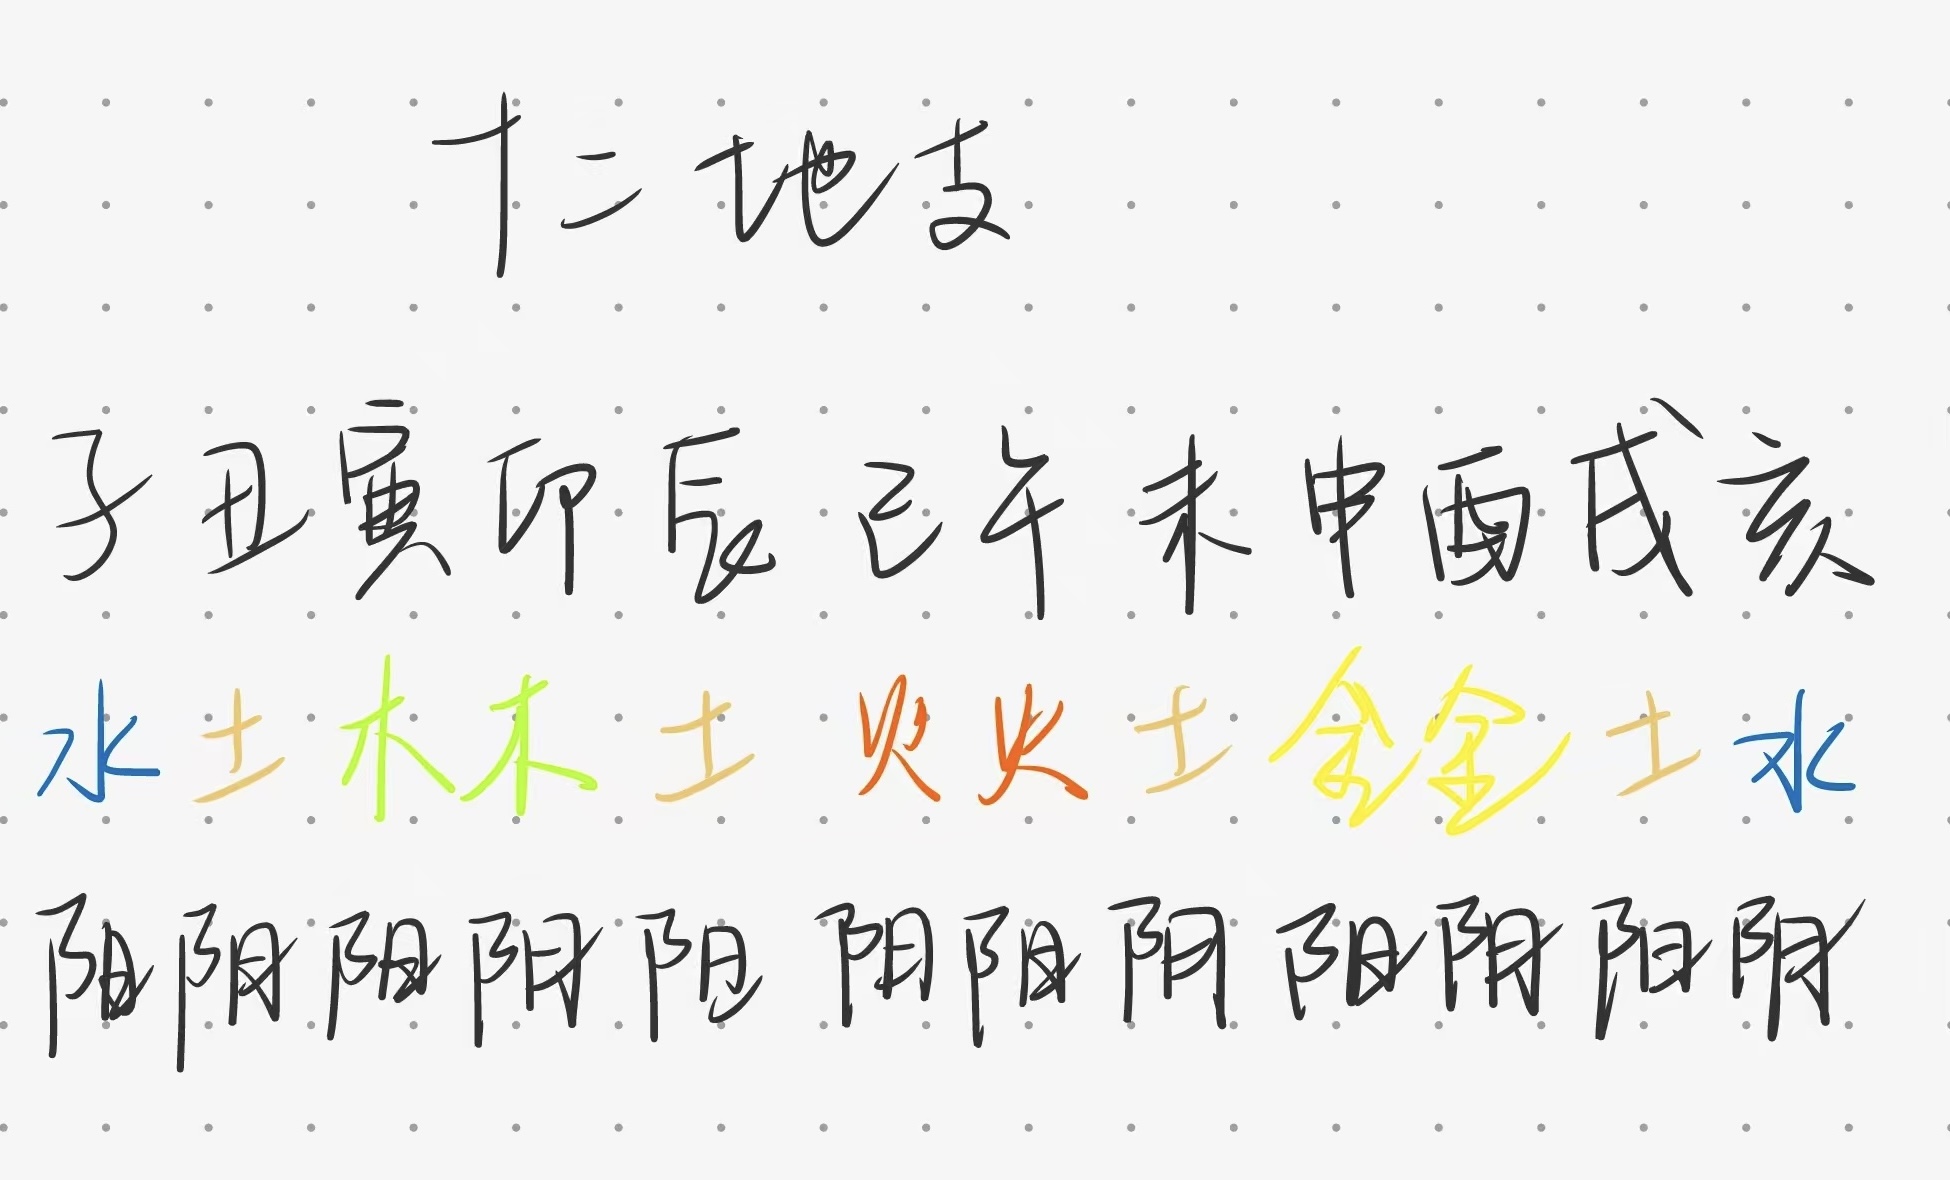 十二地支
子丑寅卯辰巳午未申酉戌亥
水土木木土火火土金金土水
阳阴阳阴阳阴阳阴阳阴阳阴